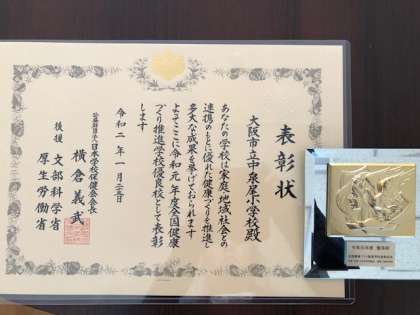 表彰状
大阪市立中泉尾小学校殿
あなたの学校は家庭、地域社会との
連携のもとに優れた健康づくりを推進し
多大な成果を挙げておられます
よってここに令和元年度全国健康
づくり推進学校優良校として表彰
します
令和二年一月二十三日
公益財団法人日本学校保健会会長
横倉義武
後援 文部科学省
厚生労働省